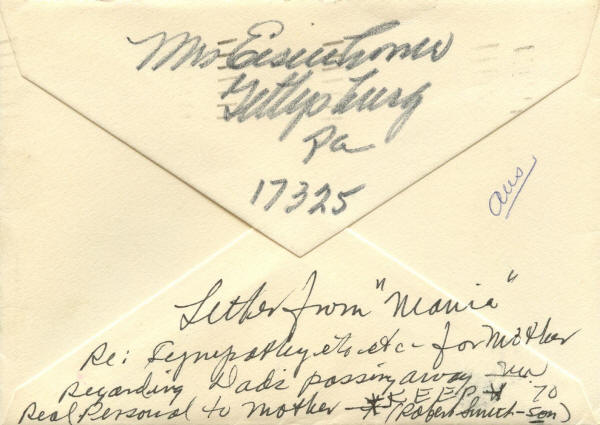 Mrs Eisenhower
Gettysburg
Pa
17325
ans
Letter from "Mamie"
Re: Sympathy etc etc - for Mother
Regarding Dad's passing away 70
Real Personal to Mother - * K E E P * (Robert Smith - son)